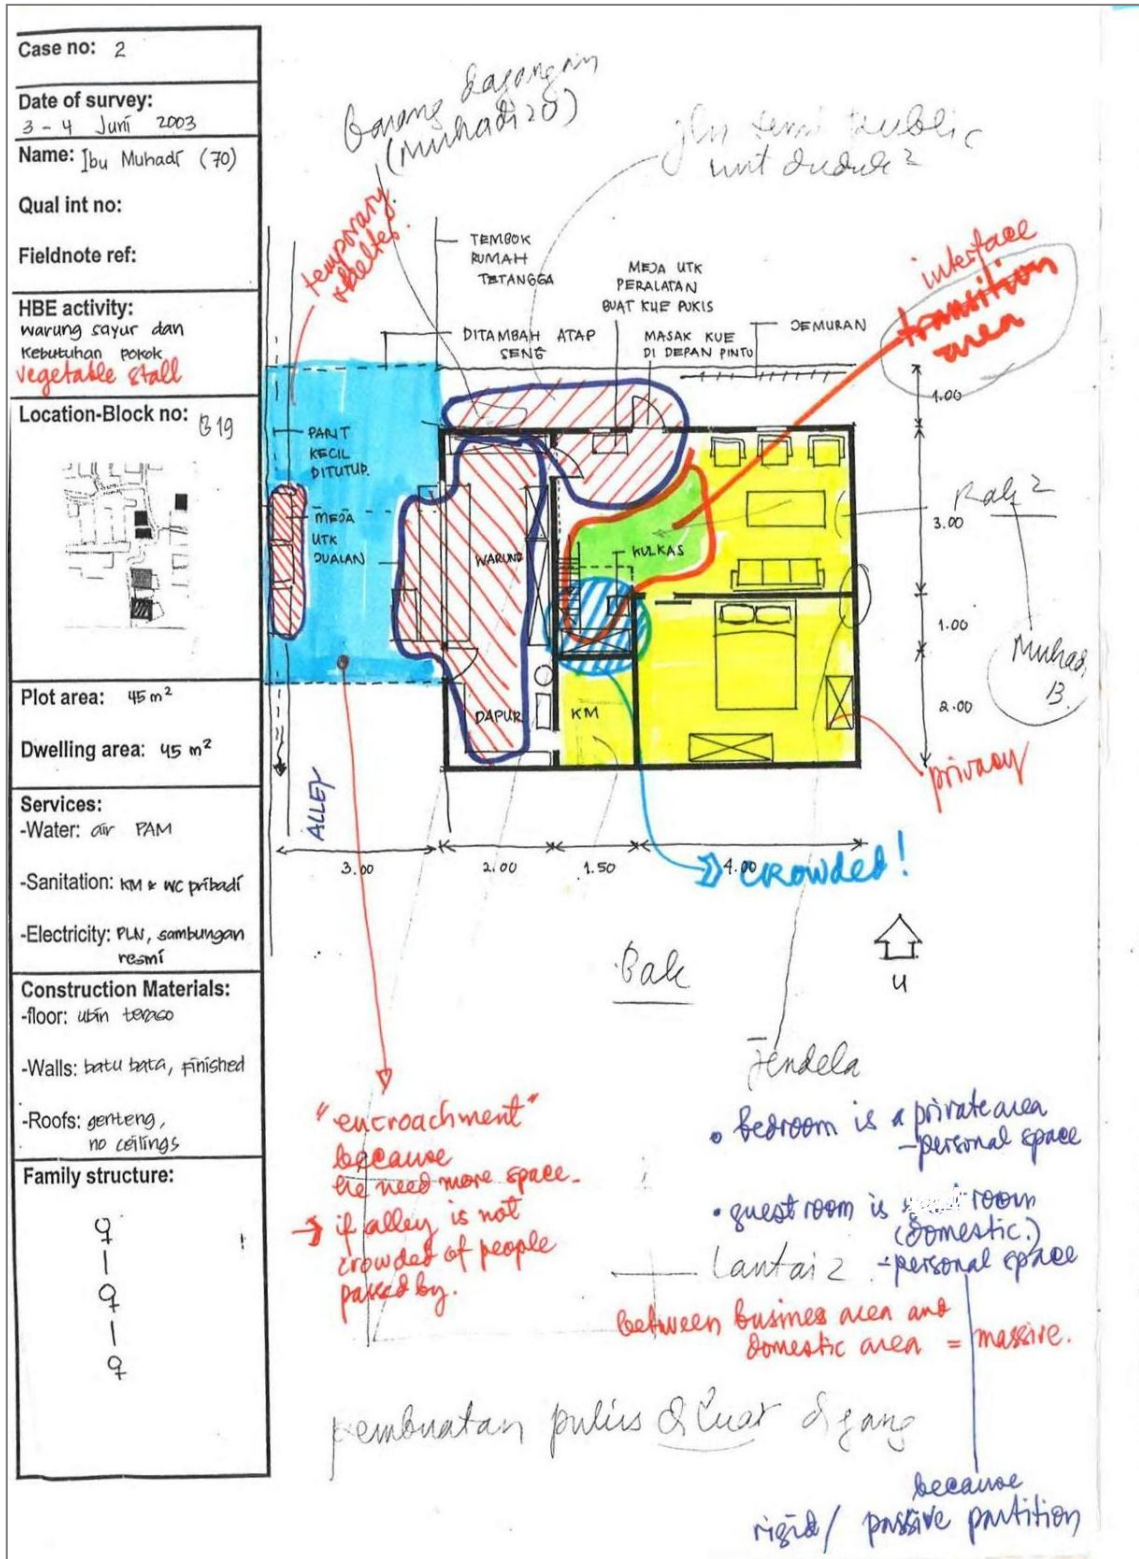 Case no: 2
Date of survey:
3 - 4 Juni 2003
Name: Ibu Muhadi (70)
Qual int no:
Fieldnote ref:
HBE activity:
warung sayur dan
kebutuhan pokok
vegetable stall
Location-Block no: B19
Plot area: 45 m²
Dwelling area: 45 m²
Services:
-Water: air PAM
-Sanitation: KM & WC pribadi
-Electricity: PLN, sambungan
resmi
Construction Materials:
-floor: ubin teraso
-Walls: batu bata, finished
-Roofs: genteng,
no ceilings
Family structure:
Barang dagangan
(Muhadi 20)
semi public
temporary
shelter.
TEMBOK
RUMAH
TETANGGA
MEJA UTK
PERALATAN
BUAT KUE PUKIS
interface
transition
area
DITAMBAH ATAP
SENG
MASAK KUE
DI DEPAN PINTU
JEMURAN
1.00
PARIT
KECIL
DITUTUP.
3.00
MEJA
UTK
JUALAN
WARUNG
KULKAS
1.00
Muhadi
13.
2.00
DAPUR
KM
privacy
ALLEY
3.00
2.00
1.50
4.00
crowded!
U
Jendela
"encroachment"
because
he need more space.
→ if alley is not
crowded of people
passed by.
• bedroom is a private area
-personal space
• guest room is room
(domestic.)
-personal space
Lantai 2
between busines area and
domestic area = massive.
pembuatan di luar di gang
because
rigid/ passive partition